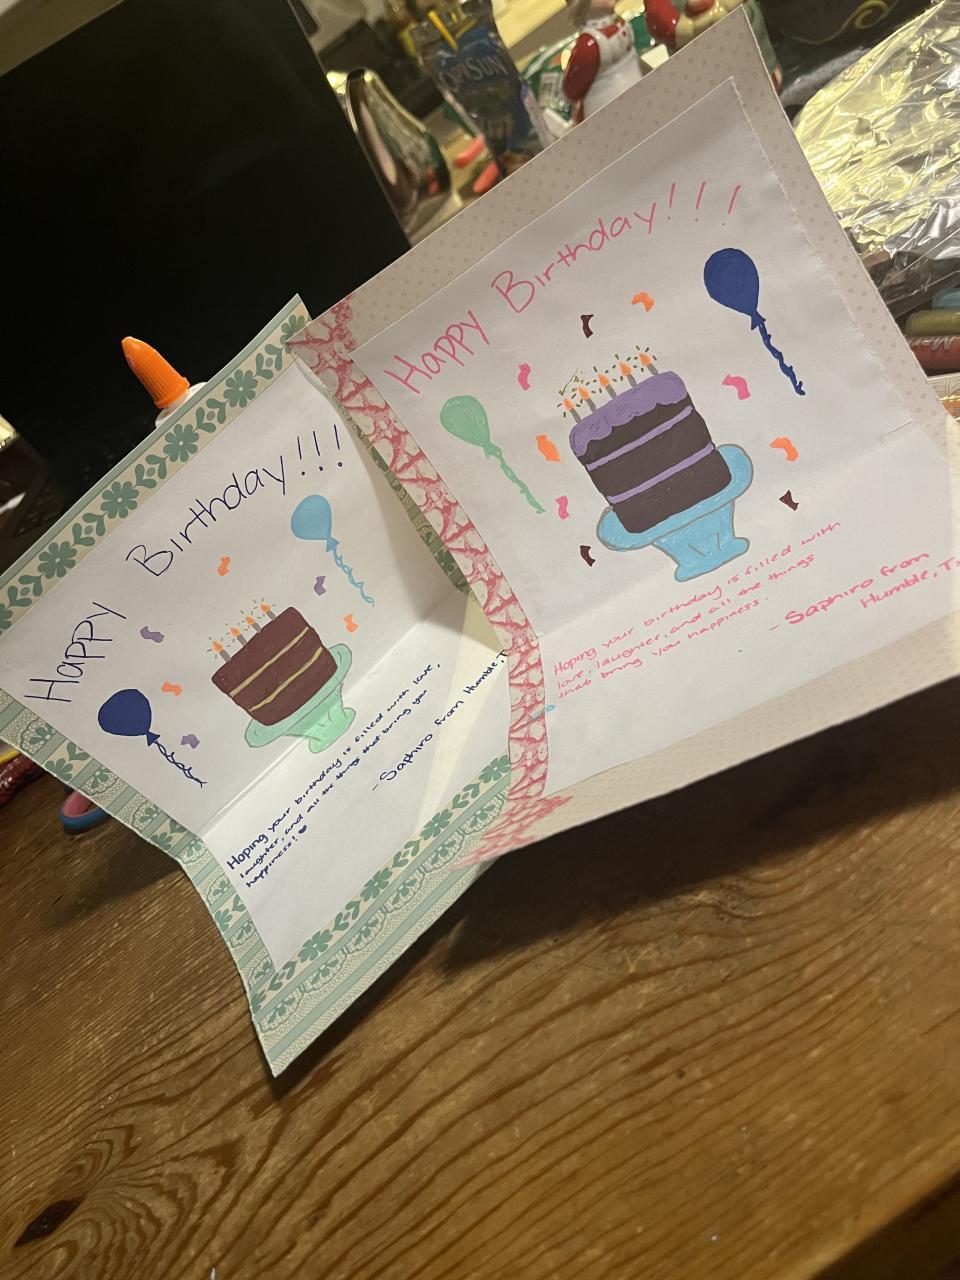 Happy Birthday!!!
Hoping your birthday is filled with love,
laughter, and all the things that bring you
happiness! ♥
- Saphiro from Humble, T
Happy Birthday!!!
Hoping your birthday is filled with
love, laughter, and all the things
that bring you happiness.
- Saphiro from
Humble, Tx
CAPRI SUN